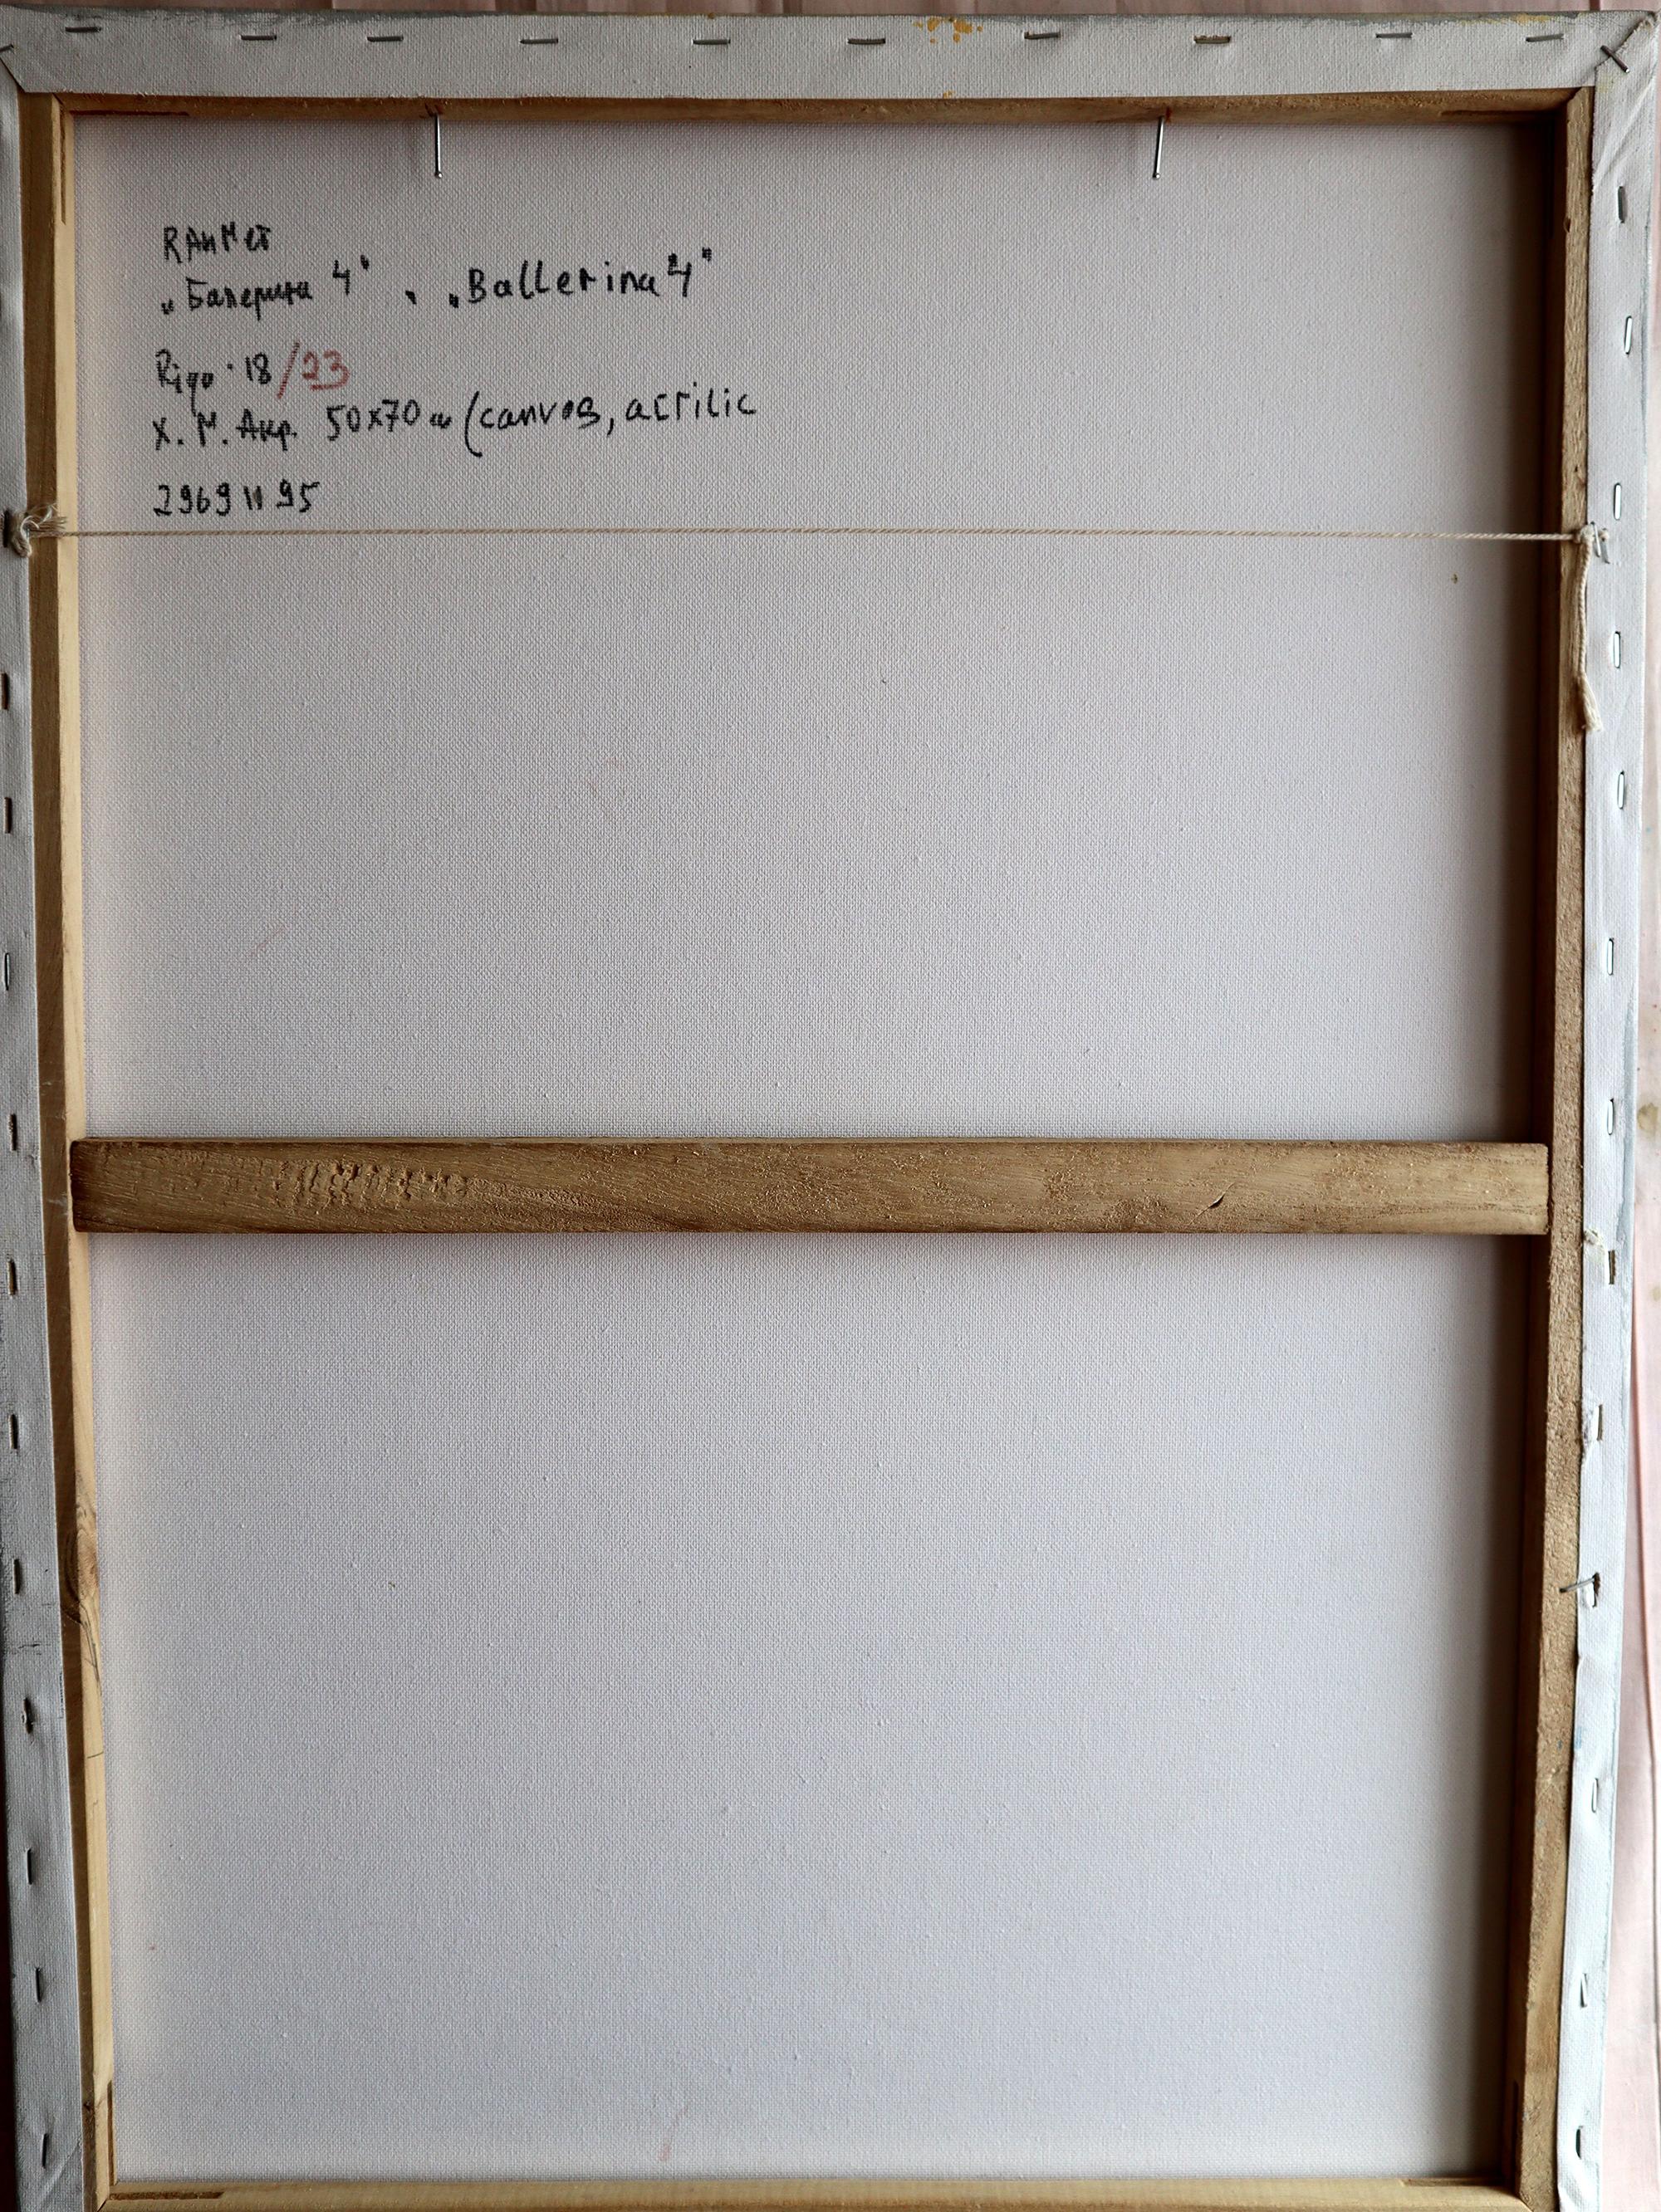 RAHMET
„Балерина 4" , „Ballerina 4"
Riga. 18/23
Х. М. Акр. 50x70 см (canvas, acrilic
29691195